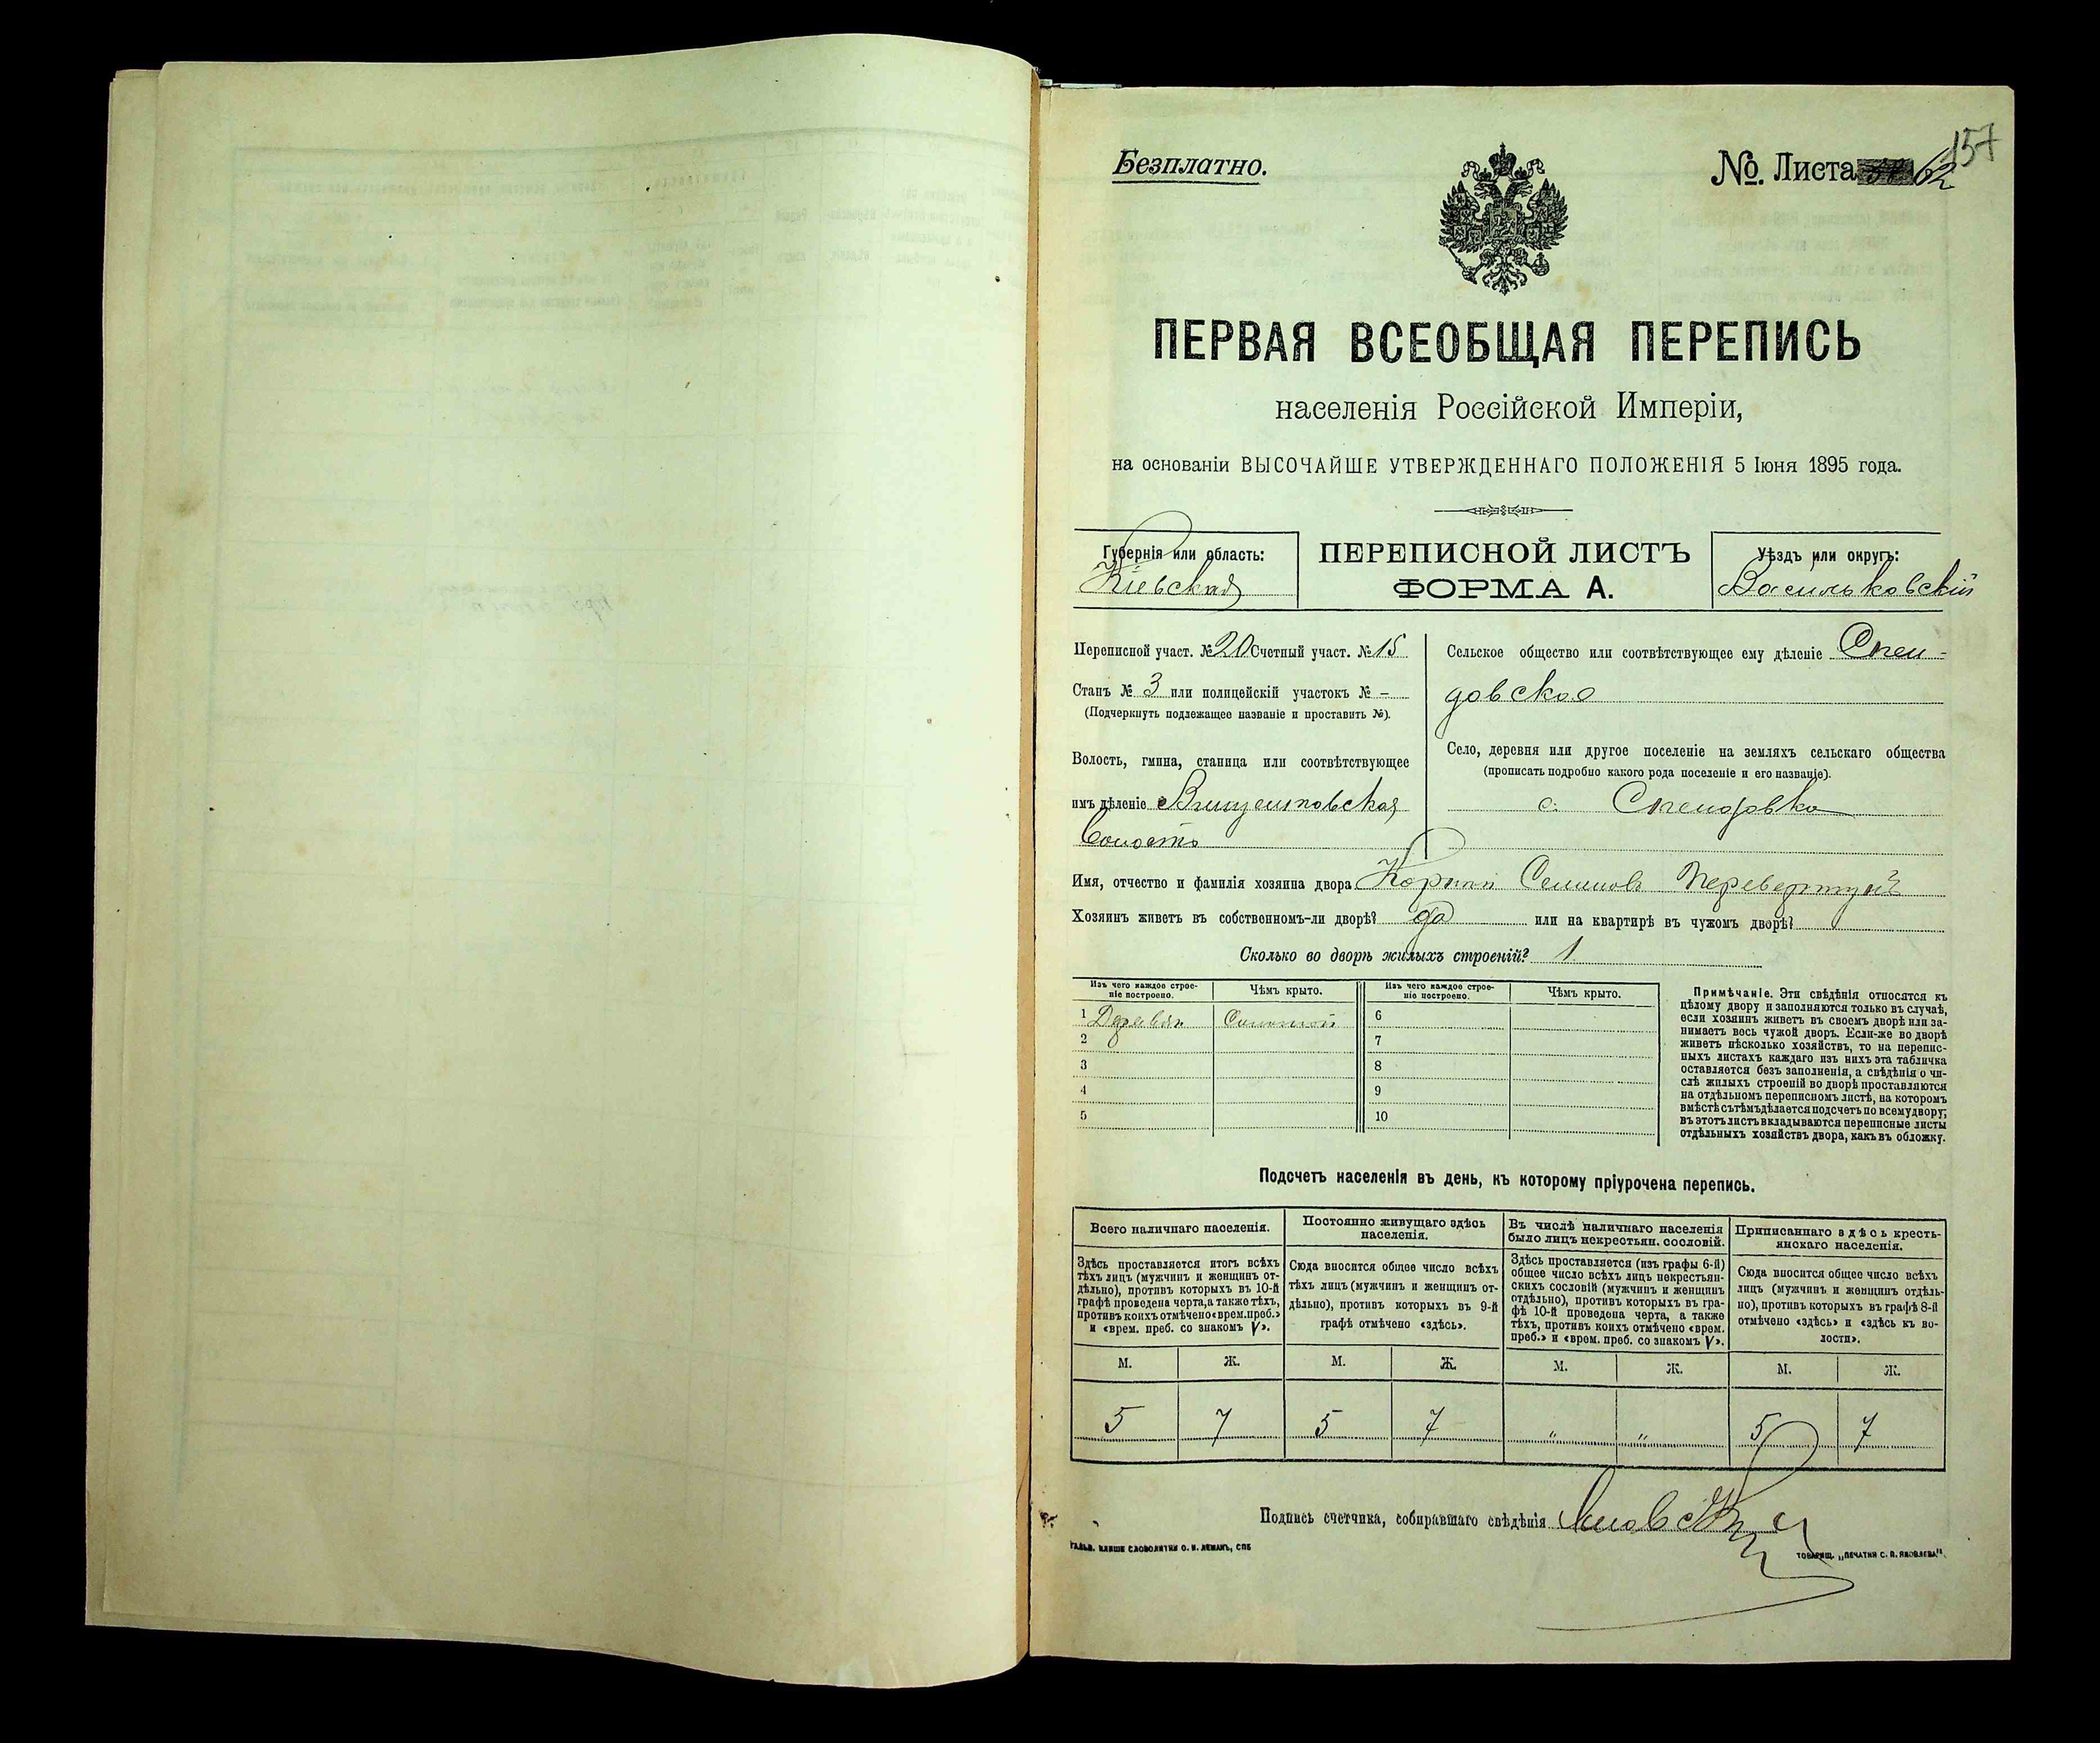 157
Безплатно.
№ Листа 62
ПЕРВАЯ ВСЕОБЩАЯ ПЕРЕПИСЬ
населенія Россійской Имперіи,
на основаніи ВЫСОЧАЙШЕ УТВЕРЖДЕННАГО ПОЛОЖЕНІЯ 5 Іюня 1895 года.
Губернія или область:
Кіевская
ПЕРЕПИСНОЙ ЛИСТЪ
ФОРМА А.
Уѣздъ или округъ:
Васильковскій
Переписной участ. № 20 Счетный участ. № 15
Станъ № 3 или полицейскій участокъ № –
(Подчеркнуть подлежащее названіе и проставить №).
Волость, гмина, станица или соотвѣтствующее
имъ дѣленіе Винцентовская
волость
Сельское общество или соотвѣтствующее ему дѣленіе Спен-
довское
Село, деревня или другое поселеніе на земляхъ сельскаго общества
(прописать подробно какого рода поселеніе и его названіе).
с. Спендовка
Имя, отчество и фамилія хозяина двора
Хозяинъ живетъ въ собственномъ-ли дворѣ? да или на квартирѣ въ чужомъ дворѣ?
Сколько во дворѣ жилыхъ строеній? 1
Изъ чего каждое строе-
ніе построено.
Чѣмъ крыто.
Изъ чего каждое строе-
ніе построено.
Чѣмъ крыто.
1 Деревян Соломой 6
2 7
3 8
4 9
5 10
Примѣчаніе. Эти свѣдѣнія относятся къ
цѣлому двору и заполняются только въ случаѣ,
если хозяинъ живетъ въ своемъ дворѣ или за-
нимаетъ весь чужой дворъ. Если-же во дворѣ
живетъ нѣсколько хозяйствъ, то на перепис-
ныхъ листахъ каждаго изъ нихъ эта табличка
оставляется безъ заполненія, а свѣдѣнія о чи-
слѣ жилыхъ строеній во дворѣ проставляются
на отдѣльномъ переписномъ листѣ, на которомъ
вмѣстѣ съ тѣмъ дѣлается подсчетъ по всему двору;
въ этотъ листъ вкладываются переписные листы
отдѣльныхъ хозяйствъ двора, какъ въ обложку.
Подсчетъ населенія въ день, къ которому пріурочена перепись.
Всего наличнаго населенія.
Здѣсь проставляется итогъ всѣхъ
тѣхъ лицъ (мужчинъ и женщинъ от-
дѣльно), противъ которыхъ въ 10-й
графѣ проведена черта, а также тѣхъ,
противъ коихъ отмѣчено «врем. преб.»
и «врем. преб. со знакомъ V».
Постоянно живущаго здѣсь
населенія.
Сюда вносится общее число всѣхъ
тѣхъ лицъ (мужчинъ и женщинъ от-
дѣльно), противъ которыхъ въ 9-й
графѣ отмѣчено «здѣсь».
Въ числѣ наличнаго населенія
было лицъ некрестьян. сословій.
Здѣсь проставляется (изъ графы 6-й)
общее число всѣхъ лицъ некрестьян-
скихъ сословій (мужчинъ и женщинъ
отдѣльно), противъ которыхъ въ гра-
фѣ 10-й проведена черта, а также
тѣхъ, противъ коихъ отмѣчено «врем.
преб.» и «врем. преб. со знакомъ V».
Приписаннаго здѣсь кресть-
янскаго населенія.
Сюда вносится общее число всѣхъ
лицъ (мужчинъ и женщинъ отдѣль-
но), противъ которыхъ въ графѣ 8-й
отмѣчено «здѣсь» и «здѣсь къ во-
лости».
М. Ж. М. Ж. М. Ж. М. Ж.
5 7 5 7 " " 5 7
Подпись счетчика, собиравшаго свѣдѣнія
ГАЛЬВ. КЛИШЕ СЛОВОЛИТНИ О. И. ЛЕМАНЪ, СПБ
ТОВАРИЩ. „ПЕЧАТНЯ С. П. ЯКОВЛЕВА".